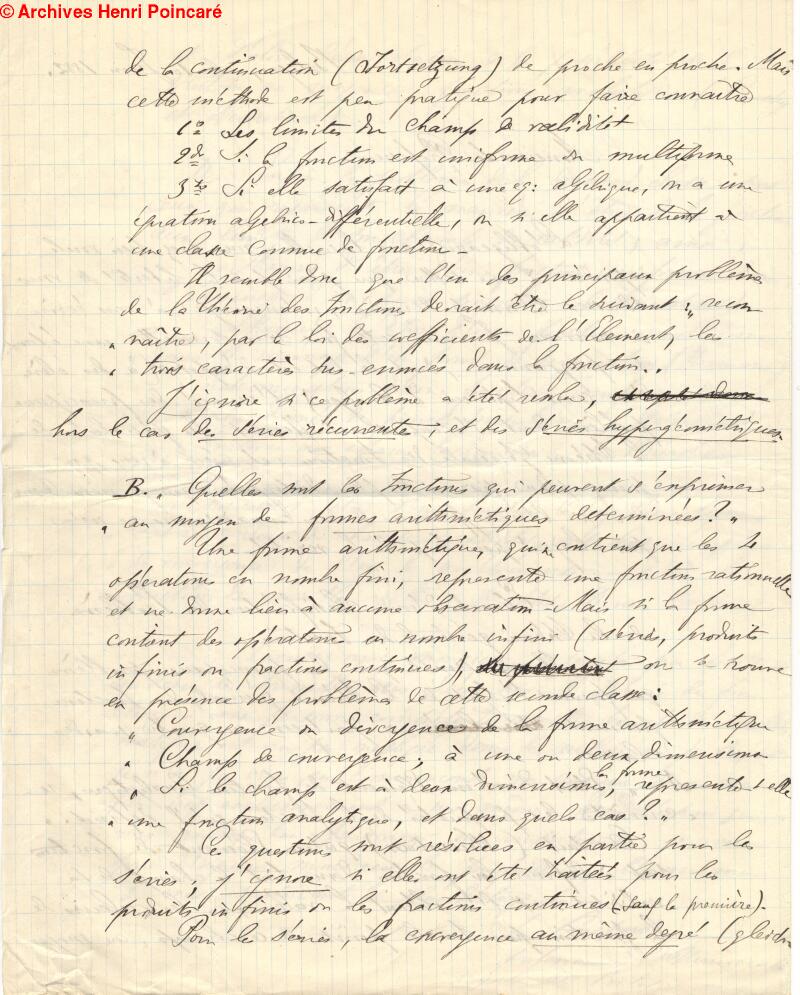 © Archives Henri Poincaré
de la continuation (Fortsetzung) de proche en proche. Mais
cette méthode est peu pratique pour faire connaître
1º Les limites du champ de validité
2º Si la fonction est uniforme ou multiforme
3º Si elle satisfait à une eq: algébrique, ou a une
équation algébrico-différentielle, ou si elle appartient à
une classe connue de fonction -
Il semble donc que l'un des principaux problèmes
de la Théorie des fonctions devrait être le suivant : „ recon
„ naître, par la loi des coefficients de l'Element, les
„ trois caractères sus-enoncés dans la fonction. „
J'ignore si ce problème a été resolu,
hors le cas des séries récurrentes, et des séries hypergéométriques.
B. „ Quelles sont les fonctions qui peuvent s'exprimer
„ au moyen de formes arithmétiques determinées ? „
Une forme arithmétique, qui ne contient que les 4
opérations en nombre fini, represente une fonction rationnelle
et ne donne lieu à aucune observation. Mais si la forme
contient des opérations en nombre infini (séries, produits
infinis ou fractions continues), on se trouve
en présence des problèmes de cette seconde classe :
„ Convergence ou divergence de la forme arithmétique
„ Champ de convergence ; à une ou deux dimensions
„ Si le champ est à deux dimensions, la forme represente-t-elle
„ une fonction analytique, et dans quels cas ? „
Ces questions sont résolues en partie pour les
séries ; j'ignore si elles ont été traitées pour les
produits infinis ou les fractions continues (sauf la première).
Pour les séries, la convergence au même degré (gleich